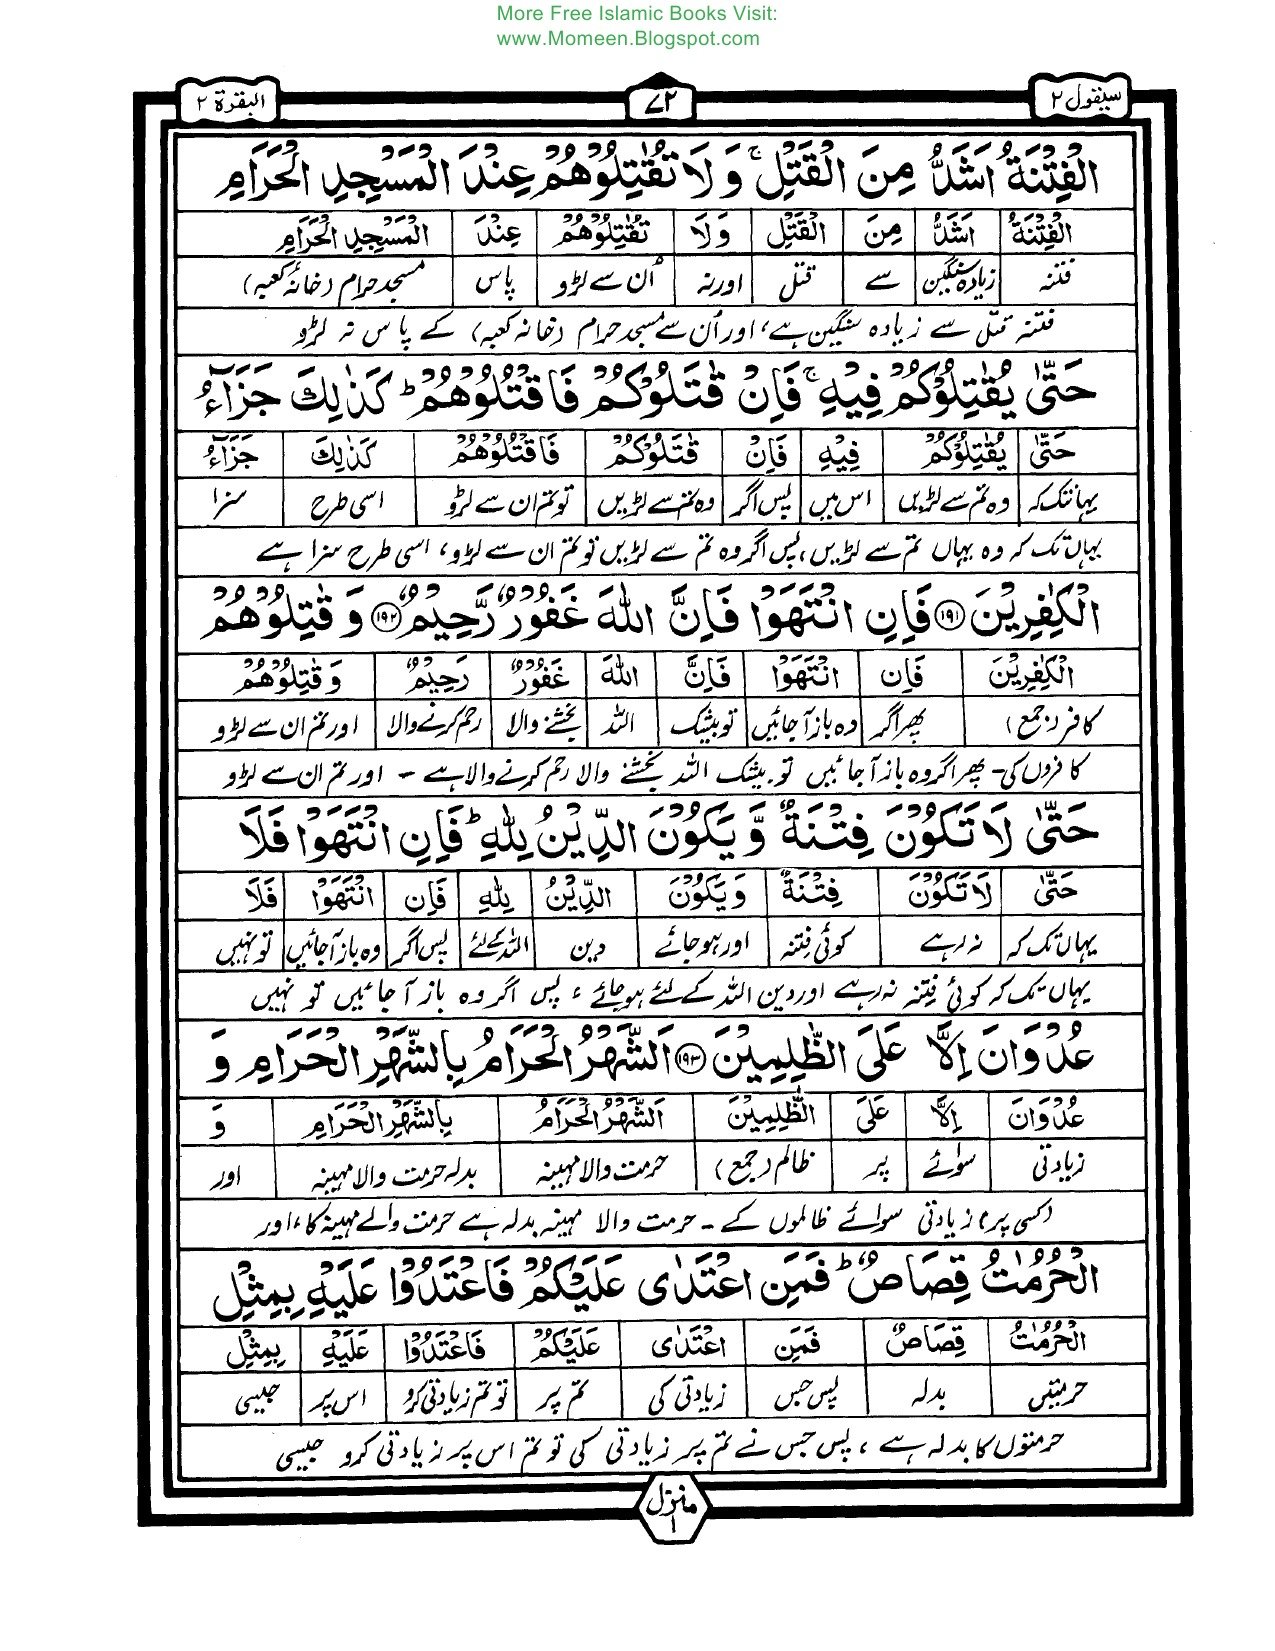 More Free Islamic Books Visit:
www.Momeen.Blogspot.com
سیقول ۲
۷۲
البقرۃ ۲
الْفِتْنَةُ اَشَدُّ مِنَ الْقَتْلِ ۚ وَ لَا تُقٰتِلُوْهُمْ عِنْدَ الْمَسْجِدِ الْحَرَامِ
الْفِتْنَةُ اَشَدُّ مِنَ الْقَتْلِ وَلَا تُقٰتِلُوْهُمْ عِنْدَ الْمَسْجِدِ الْحَرَامِ
فتنہ زیادہ سنگین سے قتل اور نہ اُن سے لڑو پاس مسجد حرام (خانہٴ کعبہ)
فتنہ قتل سے زیادہ سنگین ہے، اور اُن سے مسجد حرام (خانہ کعبہ) کے پاس نہ لڑو
حَتّٰى يُقٰتِلُوْكُمْ فِيْهِ ۚ فَاِنْ قٰتَلُوْكُمْ فَاقْتُلُوْهُمْ ؕ كَذٰلِكَ جَزَآءُ
حَتّٰى يُقٰتِلُوْكُمْ فِيْهِ فَاِنْ قٰتَلُوْكُمْ فَاقْتُلُوْهُمْ كَذٰلِكَ جَزَآءُ
یہانتک کہ وہ تم سے لڑیں اس میں پس اگر وہ تم سے لڑیں تو تم ان سے لڑو اسی طرح سزا
یہاں تک کہ وہ یہاں تم سے لڑیں، پس اگر وہ تم سے لڑیں تو تم ان سے لڑو، اسی طرح سزا ہے
الْكٰفِرِيْنَ ۱۹۱ فَاِنِ انْتَهَوْا فَاِنَّ اللّٰهَ غَفُوْرٌ رَّحِيْمٌ ۱۹۲ وَ قٰتِلُوْهُمْ
الْكٰفِرِيْنَ فَاِنِ انْتَهَوْا فَاِنَّ اللّٰهَ غَفُوْرٌ رَحِيْمٌ وَ قٰتِلُوْهُمْ
کافر (جمع) پھر اگر وہ باز آجائیں تو بیشک اللہ بخشنے والا رحم کرنے والا اور تم ان سے لڑو
کافروں کی۔ پھر اگر وہ باز آجائیں تو بیشک اللہ بخشنے والا رحم کرنے والا ہے ۔ اور تم ان سے لڑو
حَتّٰى لَا تَكُوْنَ فِتْنَةٌ وَّ يَكُوْنَ الدِّيْنُ لِلّٰهِ ؕ فَاِنِ انْتَهَوْا فَلَا
حَتّٰى لَا تَكُوْنَ فِتْنَةٌ وَ يَكُوْنَ الدِّيْنُ لِلّٰهِ فَاِنِ انْتَهَوْا فَلَا
یہاں تک کہ نہ رہے کوئی فتنہ اور ہو جائے دین اللہ کے لئے پس اگر وہ باز آجائیں تو نہیں
یہاں تک کہ کوئی فتنہ نہ رہے اور دین اللہ کے لئے ہو جائے ، پس اگر وہ باز آ جائیں تو نہیں
عُدْوَانَ اِلَّا عَلَى الظّٰلِمِيْنَ ۱۹۳ اَلشَّهْرُ الْحَرَامُ بِالشَّهْرِ الْحَرَامِ وَ
عُدْوَانَ اِلَّا عَلَى الظّٰلِمِيْنَ اَلشَّهْرُ الْحَرَامُ بِالشَّهْرِ الْحَرَامِ وَ
زیادتی سوائے پر ظالم (جمع) حرمت والا مہینہ بدلہ حرمت والا مہینہ اور
(کسی پر) زیادتی سوائے ظالموں کے ۔ حرمت والا مہینہ بدلہ ہے حرمت والے مہینہ کا، اور
الْحُرُمٰتُ قِصَاصٌ ؕ فَمَنِ اعْتَدٰى عَلَيْكُمْ فَاعْتَدُوْا عَلَيْهِ بِمِثْلِ
الْحُرُمٰتُ قِصَاصٌ فَمَنِ اعْتَدٰى عَلَيْكُمْ فَاعْتَدُوْا عَلَيْهِ بِمِثْلِ
حرمتیں بدلہ پس جس زیادتی کی تم پر تو تم زیادتی کرو اس پر جیسی
حرمتوں کا بدلہ ہے ، پس جس نے تم پر زیادتی کی تو تم اس پر زیادتی کرو جیسی
منزل ۱